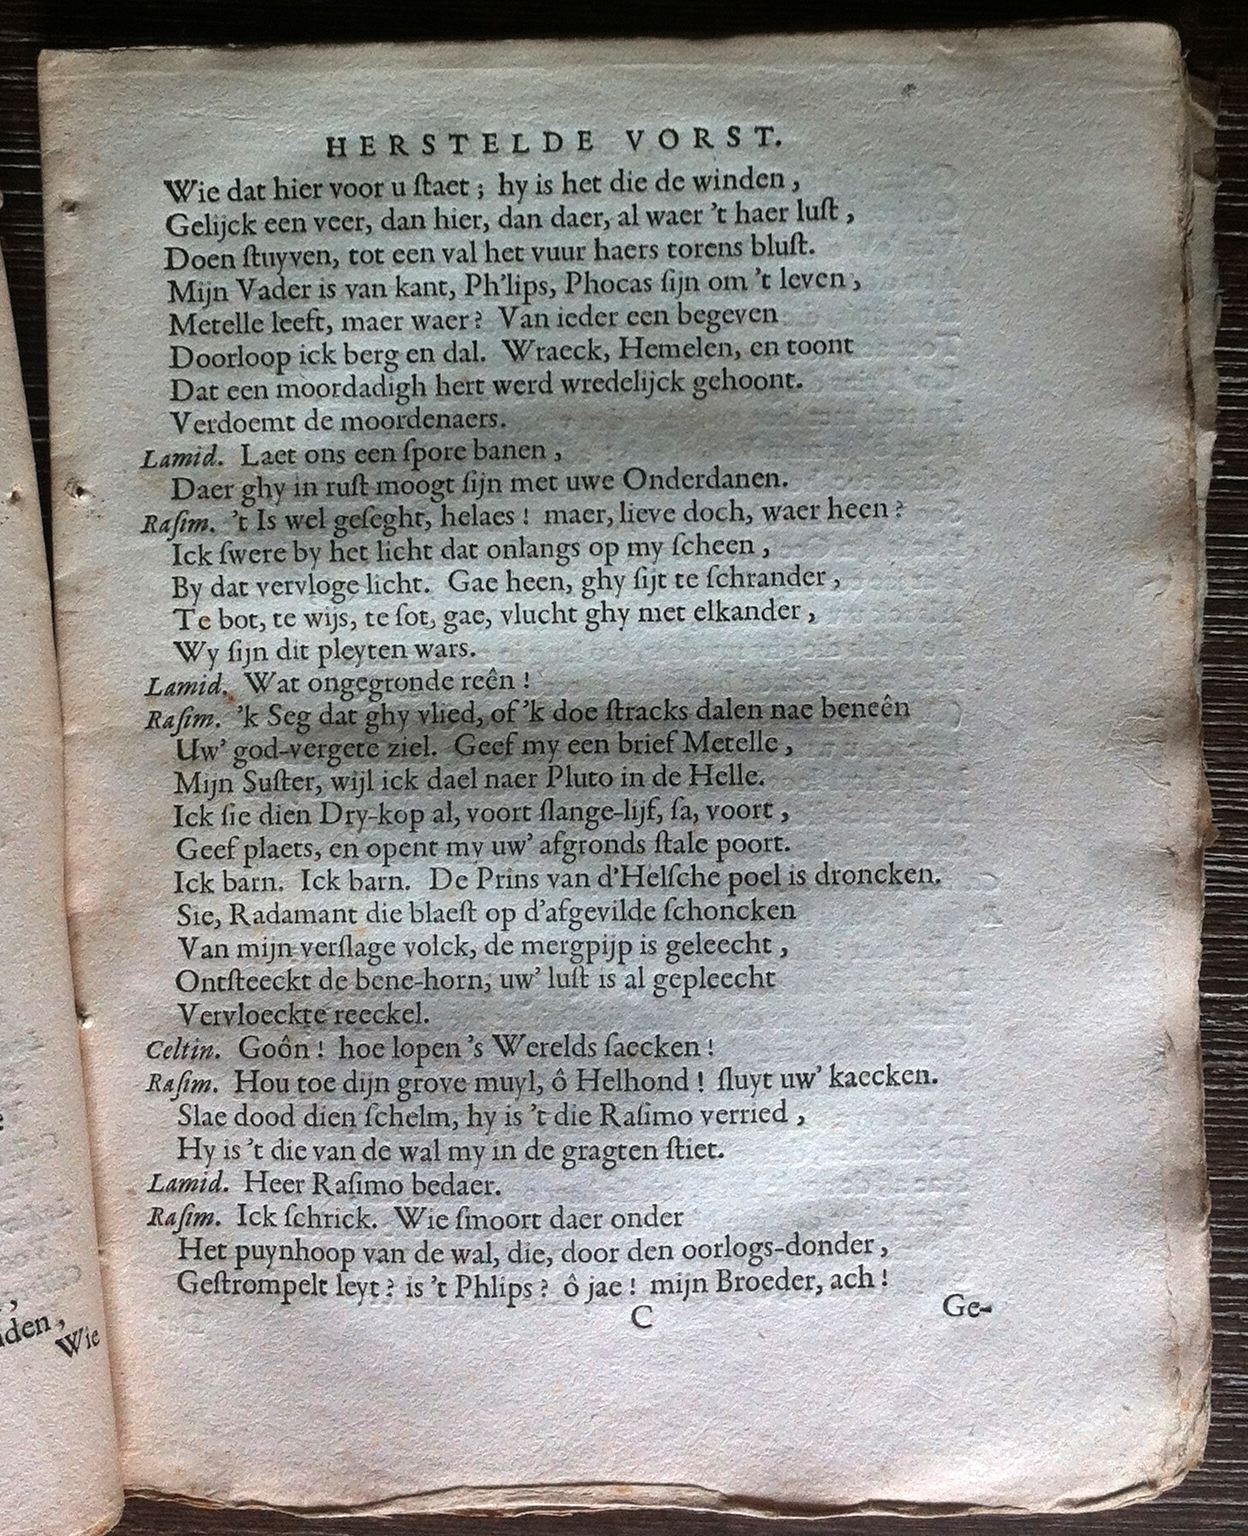 HERSTELDE VORST.
Wie dat hier voor u ſtaet ; hy is het die de winden ,
Gelijck een veer, dan hier, dan daer, al waer 't haer luſt ,
Doen ſtuyven, tot een val het vuur haers torens bluſt.
Mijn Vader is van kant, Ph'lips, Phocas ſijn om 't leven ,
Metelle leeft, maer waer? Van ieder een begeven
Doorloop ick berg en dal. Wraeck, Hemelen, en toont
Dat een moordadigh hert werd wredelijck gehoont.
Verdoemt de moordenaers.
Lamid. Laet ons een ſpore banen ,
Daer ghy in ruſt moogt ſijn met uwe Onderdanen.
Raſim. 't Is wel geſeght, helaes ! maer, lieve doch, waer heen ?
Ick ſwere by het licht dat onlangs op my ſcheen ,
By dat vervloge licht. Gae heen, ghy ſijt te ſchrander ,
Te bot, te wijs, te ſot, gae, vlucht ghy met elkander ,
Wy ſijn dit pleyten wars.
Lamid. Wat ongegronde reên !
Raſim. 'k Seg dat ghy vlied, of 'k doe ſtracks dalen nae beneên
Uw' god-vergete ziel. Geef my een brief Metelle ,
Mijn Suſter, wijl ick dael naer Pluto in de Helle.
Ick ſie dien Dry-kop al, voort ſlange-lijf, ſa, voort ,
Geef plaets, en opent my uw' afgronds ſtale poort.
Ick barn. Ick barn. De Prins van d'Helſche poel is droncken.
Sie, Radamant die blaeſt op d'afgevilde ſchoncken
Van mijn verſlage volck, de mergpijp is geleecht ,
Ontſteeckt de bene-horn, uw' luſt is al gepleecht
Vervloeckte reeckel.
Celtin. Goôn ! hoe lopen 's Werelds ſaecken !
Raſim. Hou toe dijn grove muyl, ô Helhond ! ſluyt uw' kaecken.
Slae dood dien ſchelm, hy is 't die Raſimo verried ,
Hy is 't die van de wal my in de gragten ſtiet.
Lamid. Heer Raſimo bedaer.
Raſim. Ick ſchrick. Wie ſmoort daer onder
Het puynhoop van de wal, die, door den oorlogs-donder ,
Geſtrompelt leyt ? is 't Phlips ? ô jae ! mijn Broeder, ach !
C
Ge-
den,
Wie